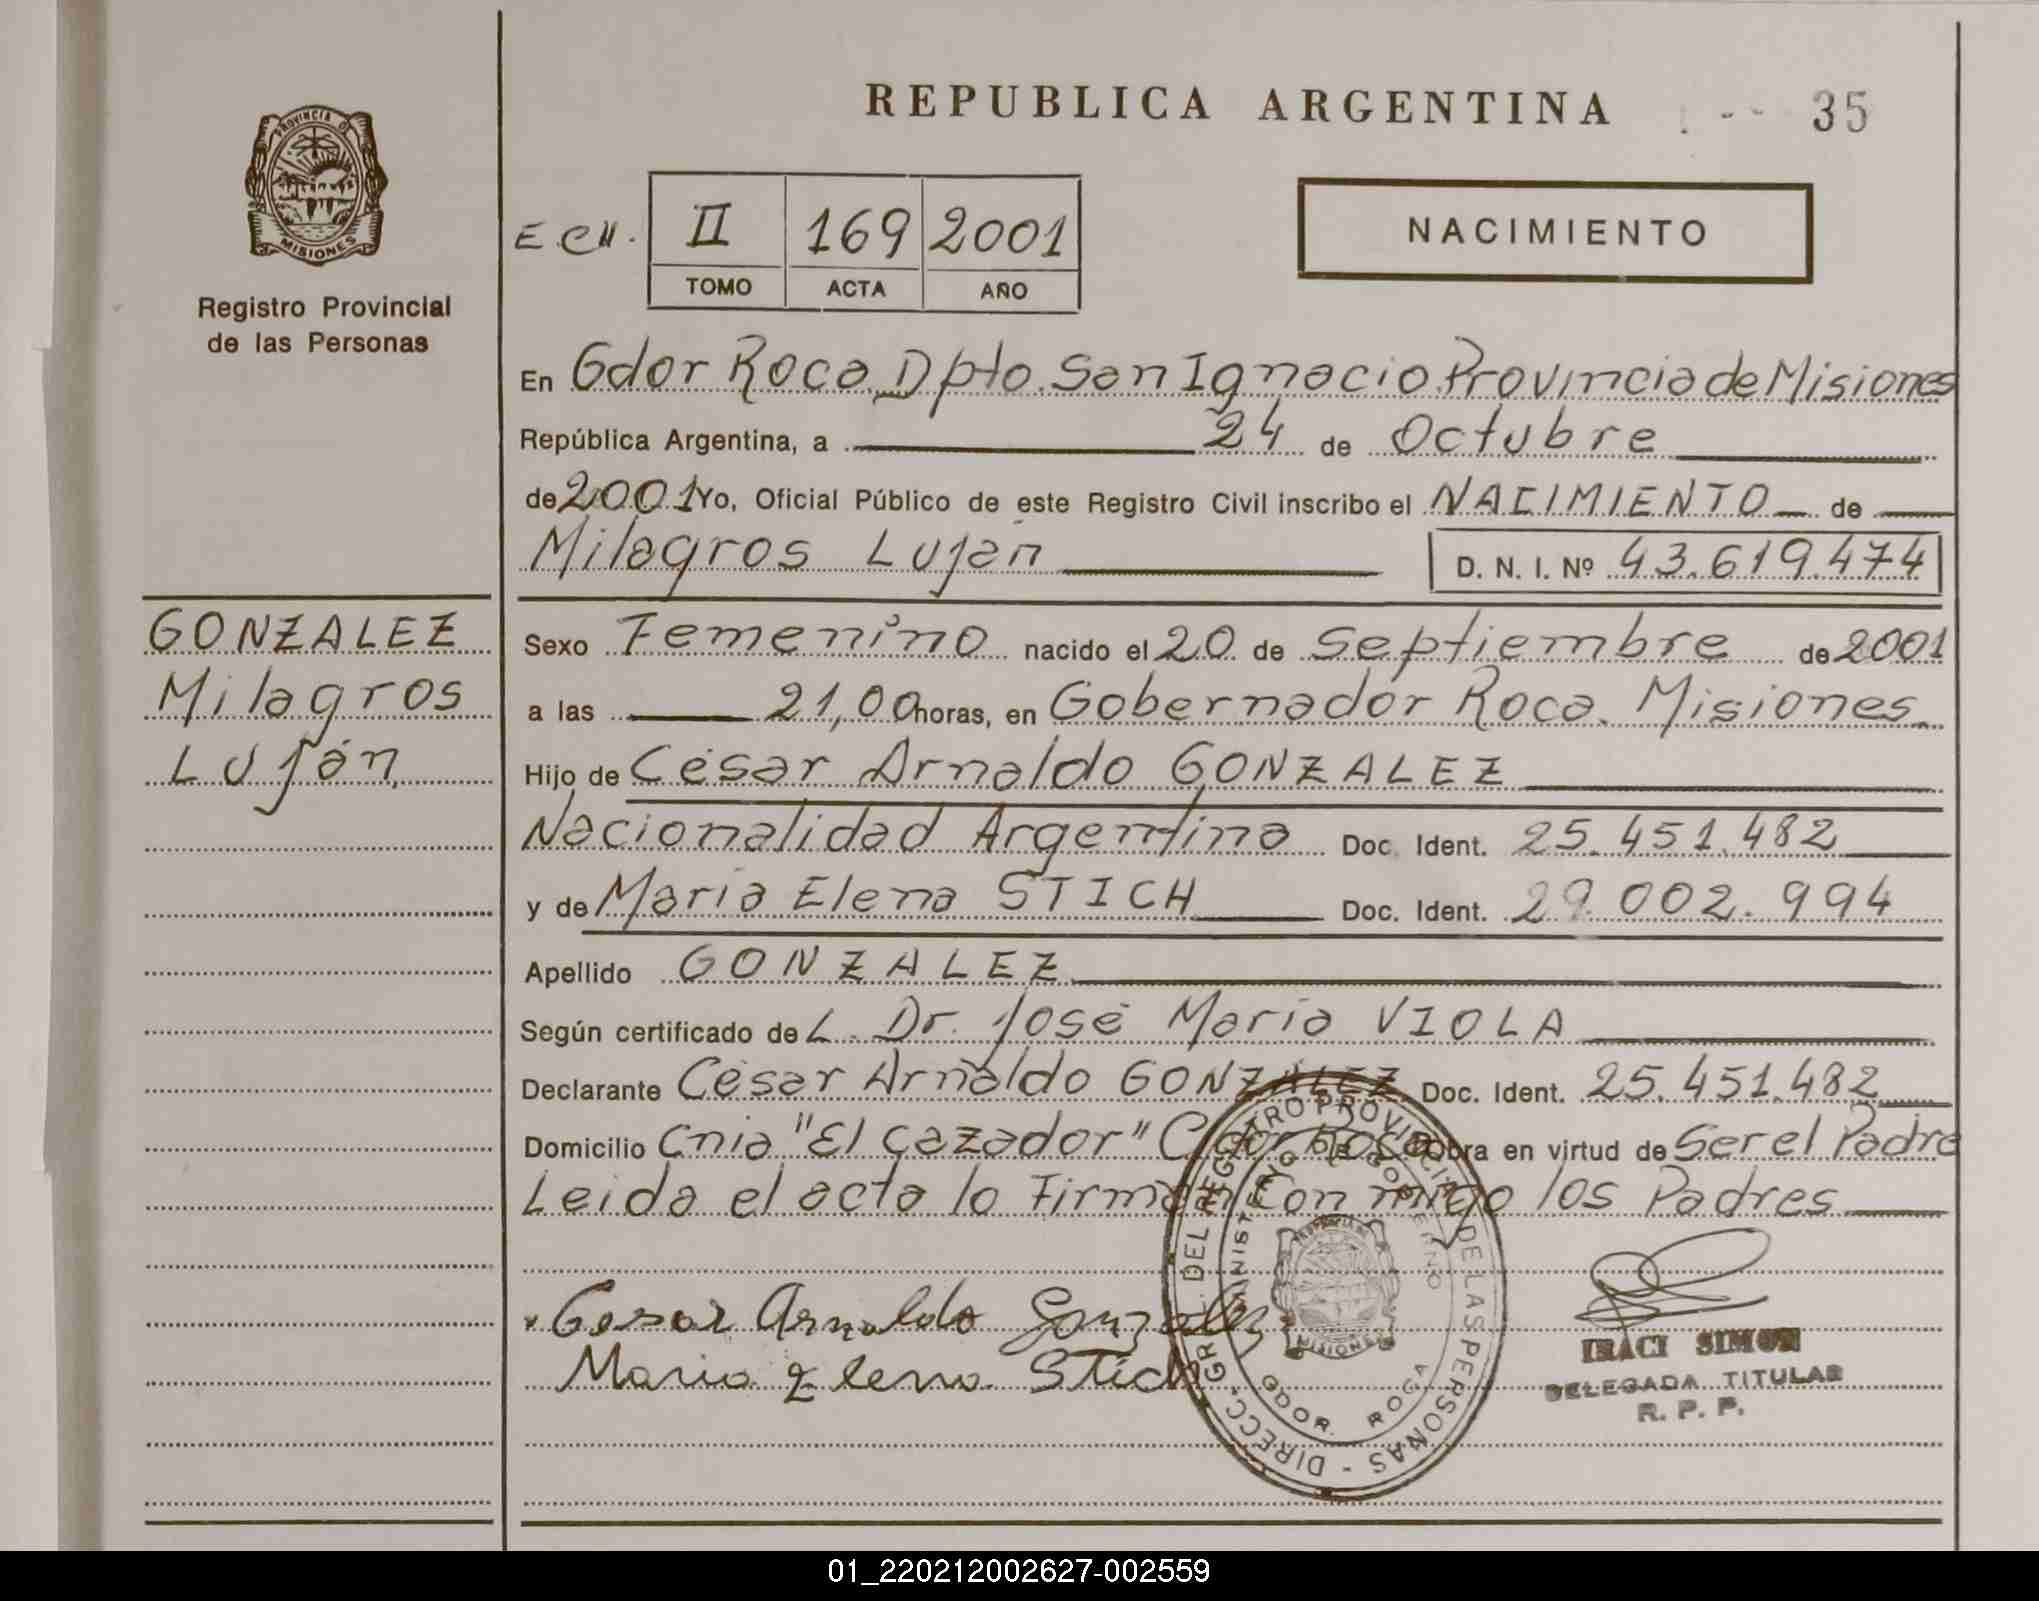 REPUBLICA ARGENTINA
35
PROVINCIA DE
MISIONES
Registro Provincial
de las Personas
E.C.N.
II 169 2001
TOMO ACTA AÑO
NACIMIENTO
En Gdor Roca Dpto. San Ignacio Provincia de Misiones
República Argentina, a 24 de Octubre
de 2001 Yo, Oficial Público de este Registro Civil inscribo el NACIMIENTO de
Milagros Luján D. N. I. Nº 43.619.474
GONZALEZ
Milagros
Luján
Sexo Femenino nacido el 20 de Septiembre de 2001
a las 21,00 horas, en Gobernador Roca. Misiones
Hijo de César Arnaldo GONZALEZ
Nacionalidad Argentina Doc. Ident. 25.451.482
y de María Elena STICH Doc. Ident. 29.002.994
Apellido GONZALEZ
Según certificado de L. Dr. José María VIOLA
Declarante César Arnaldo GONZALEZ Doc. Ident. 25.451.482
Domicilio Cnia "El Cazador" Gdor Roca Obra en virtud de Ser el Padre
Leida el acta lo Firman Con migo los Padres
Cesar Arnaldo Gonzalez
Maria Elena Stich
DIRECC. GRL. DEL REGISTRO PROVINCIAL DE LAS PERSONAS -
MINISTERIO DE GOBIERNO
MISIONES
GDOR. ROCA
IRACI SIMON
DELEGADA TITULAR
R. P. P.
01_220212002627-002559